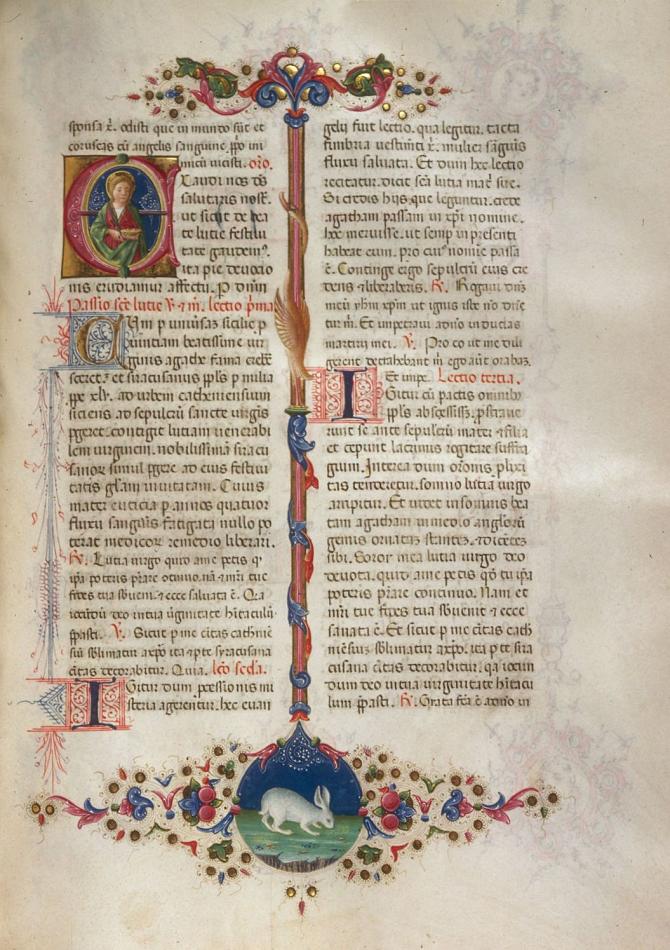 sponsa x̄. odisti que in mundo sūt et
coruscas cū angelis sanguine ꝓpo ini
micū uicisti. oro.
Exaudi nos ds̄
salutaris nost̄.
ut sicut de bea
te lucie festiui
tate gaudem⁹.
ita pie deuocio
nis erudiamur affectu. P dn̄m
Passio scē lucie v̄ ⁊ m̄. lectio p̄ma
Cum p uniūsaz sicilie ꝓ
uinciam beatissime uir
ginis agathe fama
et siracusanus pp̄ls p milia
ad urbem cathenensium
siciens ad sepulcrū sancte uirgīs
pgeret. contigit luciam uenerabi
lem uirginem. nobilissimā siracu
sanor simul pgere ad eius festiui
tatis gl̄am inuitatam. Cuius
mater euticia p annos quatuor
fluxū sanguīs fatigata nullo po
terat medicor remedio liberari.
℟. Lucia uirgo quid a me petis q̄
ip̄a poteris p̄stare ɔtinuo. nā ⁊ mr̄i tue
fides tua sbueīt. ⁊ ecce saluata ē. Qia
iocūdū deo in tua uḡinitate hitaculū
p̄pasti. ℣. Sicut p me ciuitas cathnē
siū sblimatur a xp̄o ita ⁊ p te syracusana
ciūtas decorabitur. Quia. lc̄o scda.
Igitur dum ꝓcessionis mi
steria agerentur. hec euan
gelij fuit lectio. qua legitur. tacta
fimbria uestimti x̄. mulier sāguīs
fluxu saluata. Et dum hec lectio
recitatur. dicit scā lucia matī sue.
Si credis hijs que leguntur. crede
agatham passam in xp̄i nomine.
hoc meruisse. ut semp in presenti
habeat eum. pro cui⁹ nomine passa
ē. Continge ergo sepulcrū eius cre
dens ⁊ liberaberis. ℟. Rogaui dn̄m
meū yhm xp̄m ut ignis iste nō dn̄e
tur m̄. Et impetraui a dn̄o inducias
martirij mei. ℣. Pro eo ut me dili
gerent detrahebant m̄ ego aūt orabaz.
Et impe. Lectio tercia.
Igitur cū pactis omnibꝫ
pp̄ls abscessissꝫ. ꝓstraue
runt se ante sepulcrū mater ⁊ filia
et ceperunt lacrimis rogitare suffra
gium. Interea dum orōnis plixi
tas tenderetur. somno lucia uirgo
arripitur. Et uidet in somnis bea
tam agatham in medio angelorū
gemis ornatā stantez. ⁊ dicētez
sibi. Soror mea lucia uirgo deo
deuota. quid a me petis qd̄ tu ip̄a
poteris p̄stare continuo. Nam et
mr̄i tue fides tua sbuenit ⁊ ecce
sanata ē. Et sicut p me ciūtas cath
niēsiuꝫ sblimatur a xp̄o. ita p te sira
cusana ciūtas decorabitur. qia iocun
dum deo in tua uirginitate hītacu
lum p̄pasti. ℟. Grata fcā ē a dn̄o in